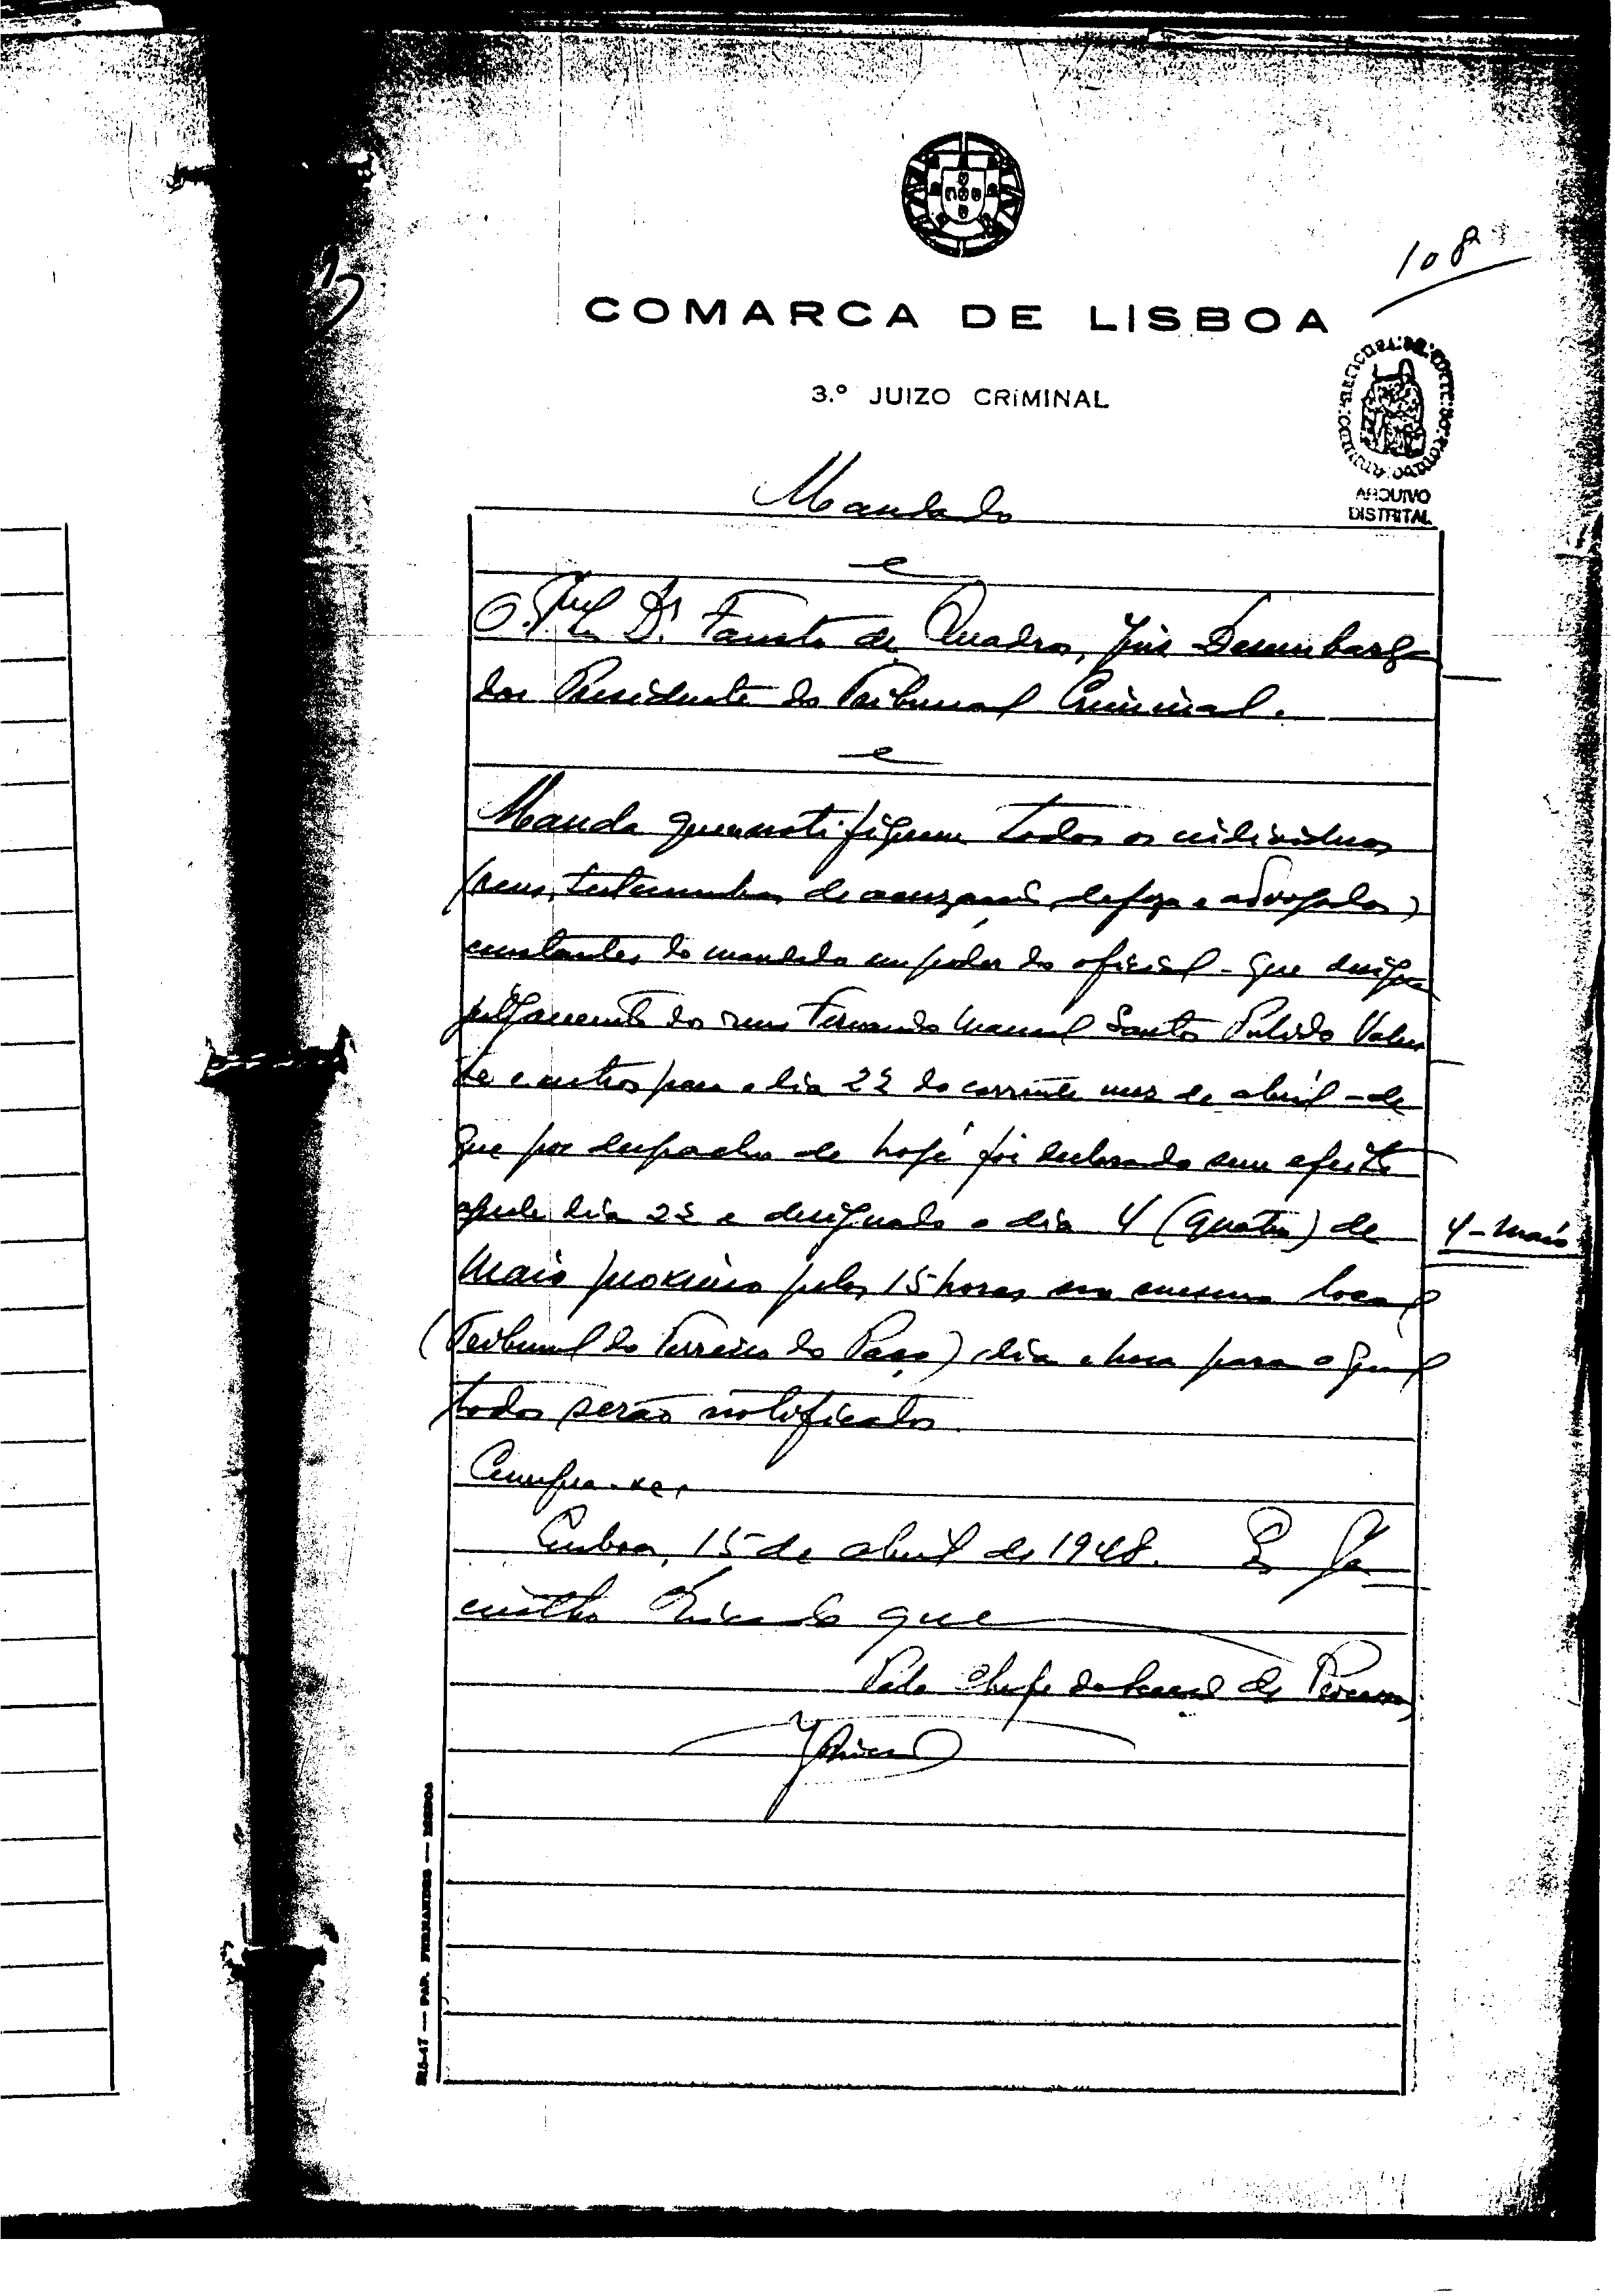 108
COMARCA DE LISBOA
3.º JUIZO CRIMINAL
ARQUIVO
DISTRITAL
Mandado
O Dr. Fausto de Quadros, Juiz Desembarga
dor Presidente do Tribunal Criminal.
Manda que notifiquem todos os individuos
(reus, testemunhas de acuzação, defeza e advogados)
constantes do mandado em poder do oficial - que designa
julgamento do reu Fernando Manuel Santos Pulido Valen
te e outros para o dia 22 do corrente mez de abril - de
que por despacho de hoje foi declarado sem efeito
aquele dia 22 e designado o dia 4 (quatro) de
4 - Maio
Maio proximo pelas 15 horas no mesmo local
(Tribunal do Terreiro do Paço) dia e hora para o qual
todos serão notificados.
Cumpra-se,
Lisboa, 15 de abril de 1948. E
que
Pelo chefe da Secção de Processos
PAP. FERNANDES — LISBOA